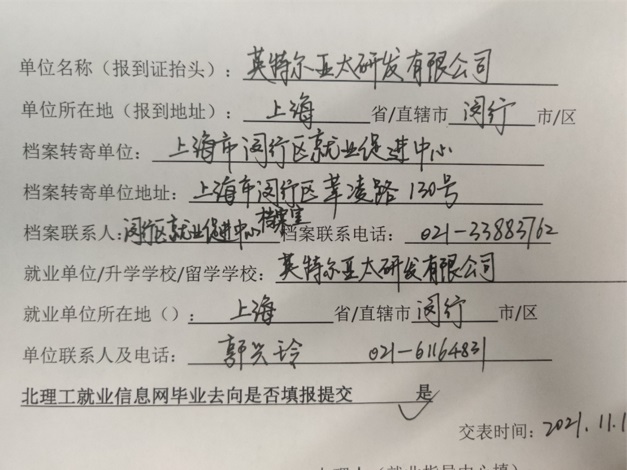 单位名称（报到证抬头）：英特尔亚太研发有限公司
单位所在地（报到地址）：上海 省/直辖市 闵行 市/区
档案转寄单位：上海市闵行区就业促进中心
档案转寄单位地址：上海市闵行区莘凌路130号
档案联系人:闵行区就业促进中心档案室 档案联系电话：021-33883762
就业单位/升学学校/留学学校：英特尔亚太研发有限公司
就业单位所在地（）：上海 省/直辖市 闵行 市/区
单位联系人及电话：郭兴玲 021-61164831
北理工就业信息网毕业去向是否填报提交 是
交表时间：2021.11.1